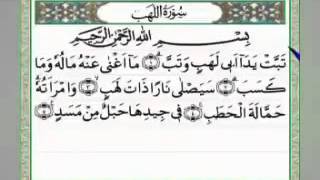 سُورَةُ اللَّهَبِ
بِسْمِ اللَّهِ الرَّحْمَٰنِ الرَّحِيمِ
تَبَّتْ يَدَآ أَبِى لَهَبٍ وَتَبَّ ۝١ مَآ أَغْنَىٰ عَنْهُ مَالُهُ وَمَا
كَسَبَ ۝٢ سَيَصْلَىٰ نَارًا ذَاتَ لَهَبٍ ۝٣ وَامْرَأَتُهُ
حَمَّالَةَ الْحَطَبِ ۝٤ فِى جِيدِهَا حَبْلٌ مِّن مَّسَدٍ ۝٥